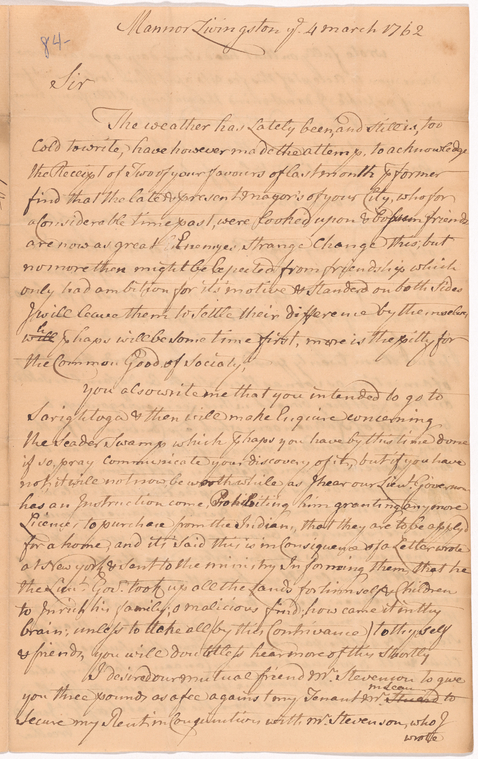 84-
Mannor Livingston ye. 4 march 1762
Sir
The weather has Lately been, and still is, too
Cold to write, have however made the attemp, to acknowledge
the Receipt of Two of your favours of last month former
find that the late & present mayor's of your City, who for
a Considerable time past, were looked upon & bosum friends
are now as great Enemyes strange Change this, but
no more then might be Expected from friendship which
only had ambition for its motive & standed on both sides
I will leave them to settle their difference by themselves,
will phaps will be some time first, more is the pitty for
the Common Good of Society,
You also write me that you intended to go to
Sarightoga & then will make Enquire concerning
the Ceader Swamp which phaps you have by this time done
if so, pray Communicate your discovery of it, but if you have
not, it will not now be worth while, as I hear our Lieut. Governor
has an Instruction come, Prohibiting him granting any more
Licences to purchase from the Indians, that they are to be applyd
for a home, and its Said this is in Consiquence of a Letter wrote
at New york & sent to the ministry Informing them that he
the Lieut. Govr. took up all the Lands for himself & Children
to Inrich his family, a malicious find, how came it in they
brain, unless to take all by this Contrivance) to thyself
& friends, you will doubtless hear more of this shortly
I desired our mutual friend Mr. Stevenson to give
you three pounds as a fee against my Tenant Mr. to
Secure my Rent in Conjunction with Mr. Stevenson, who I
wrote